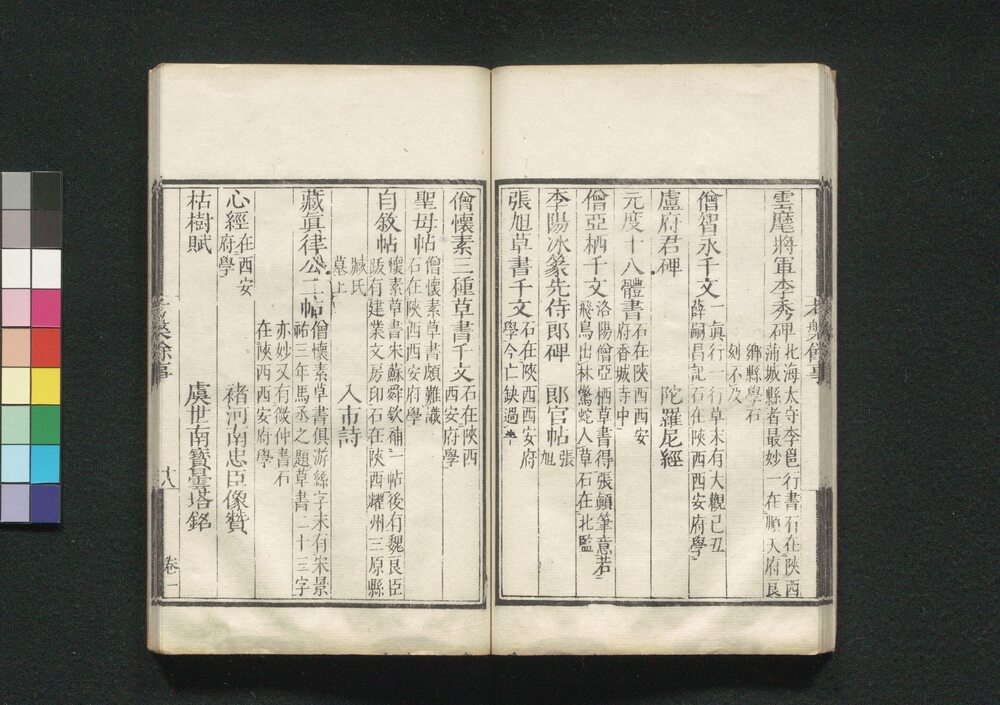 雲麾將軍李秀碑北海太守李邕行書石在陝西
蒲城縣者最妙一在順天府良
鄉縣學石
刻不及
僧智永千文一眞行一行草末有大觀己丑
薛嗣昌記石在陝西西安府學
盧府君碑 陀羅尼經
元度十八體書石在陝西西安
府香城寺中
僧亞栖千文洛陽僧亞栖草書得張顛筆意若
飛鳥出林驚蛇入草石在北監
李陽冰篆先侍郎碑 郎官帖張
旭
張旭草書千文石在陝西西安府
學今亡缺過半
僧懷素三種草書千文石在陝西
西安府學
聖母帖僧懷素草書頗難識
石在陝西西安府學
自敘帖懷素草書朱蘇舜欽補一帖後有魏良臣
跋有建業文房印石在陝西耀州三原縣
臧氏
墓上 入市詩
藏眞律公二帖僧懷素草書俱游絲字末有宋景
祐三年馬丞之題草書二十三字
亦妙又有徵仲書石
在陝西西安府學
心經在西安
府學 褚河南忠臣像贊
枯樹賦 虞世南寶曇塔銘
廿八
卷一